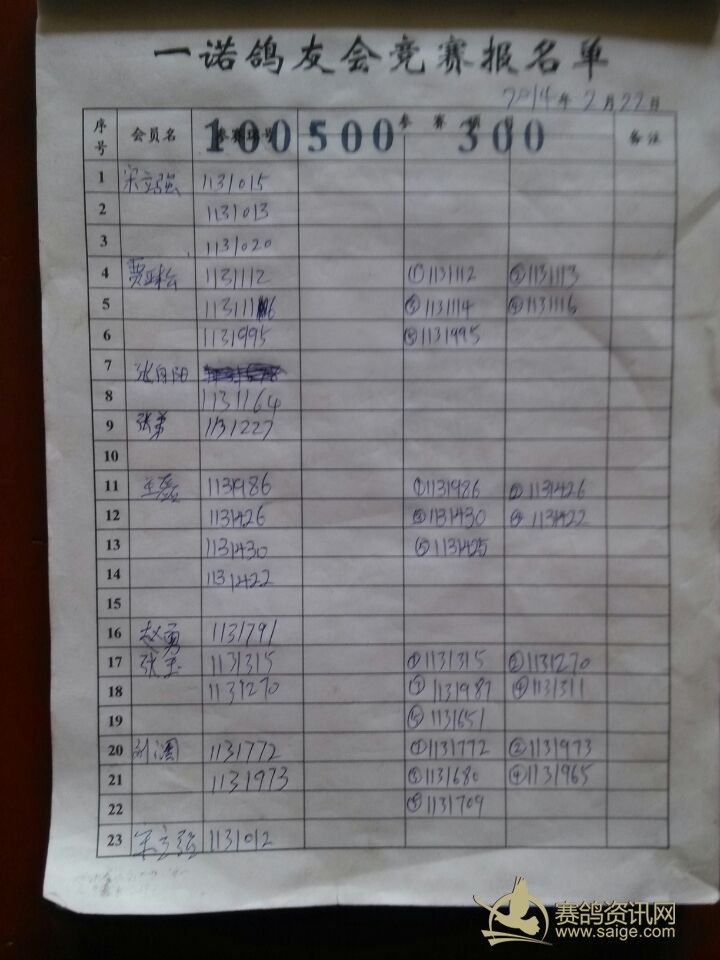 一诺鸽友会竞赛报名单
2014年2月22日
序号 会员名 参赛环号 参赛项目 备注
100 500 300
1 宋立强 1131015
2 1131013
3 1131020
4 1131112 ①1131112 ②1131113
5 ③1131114 ④1131116
6 1131995 ⑤1131995
7 张自阳
8 1131164
9 张弟 1131227
10
11 王磊 1131986 ①1131986 ②1131426
12 1131426 ③1131430 ④1131422
13 1131430 ⑤1131425
14 1131422
15
16 赵勇 1131791
17 张玉 1131315 ①1131315 ②1131270
18 1131270 ③1131987 ④1131311
19 ⑤1131651
20 1131772 ①1131772 ②1131973
21 1131973 ③1131680 ④1131965
22 ⑤1131709
23 宋立强 1131012
赛鸽资讯网
www.saige.com